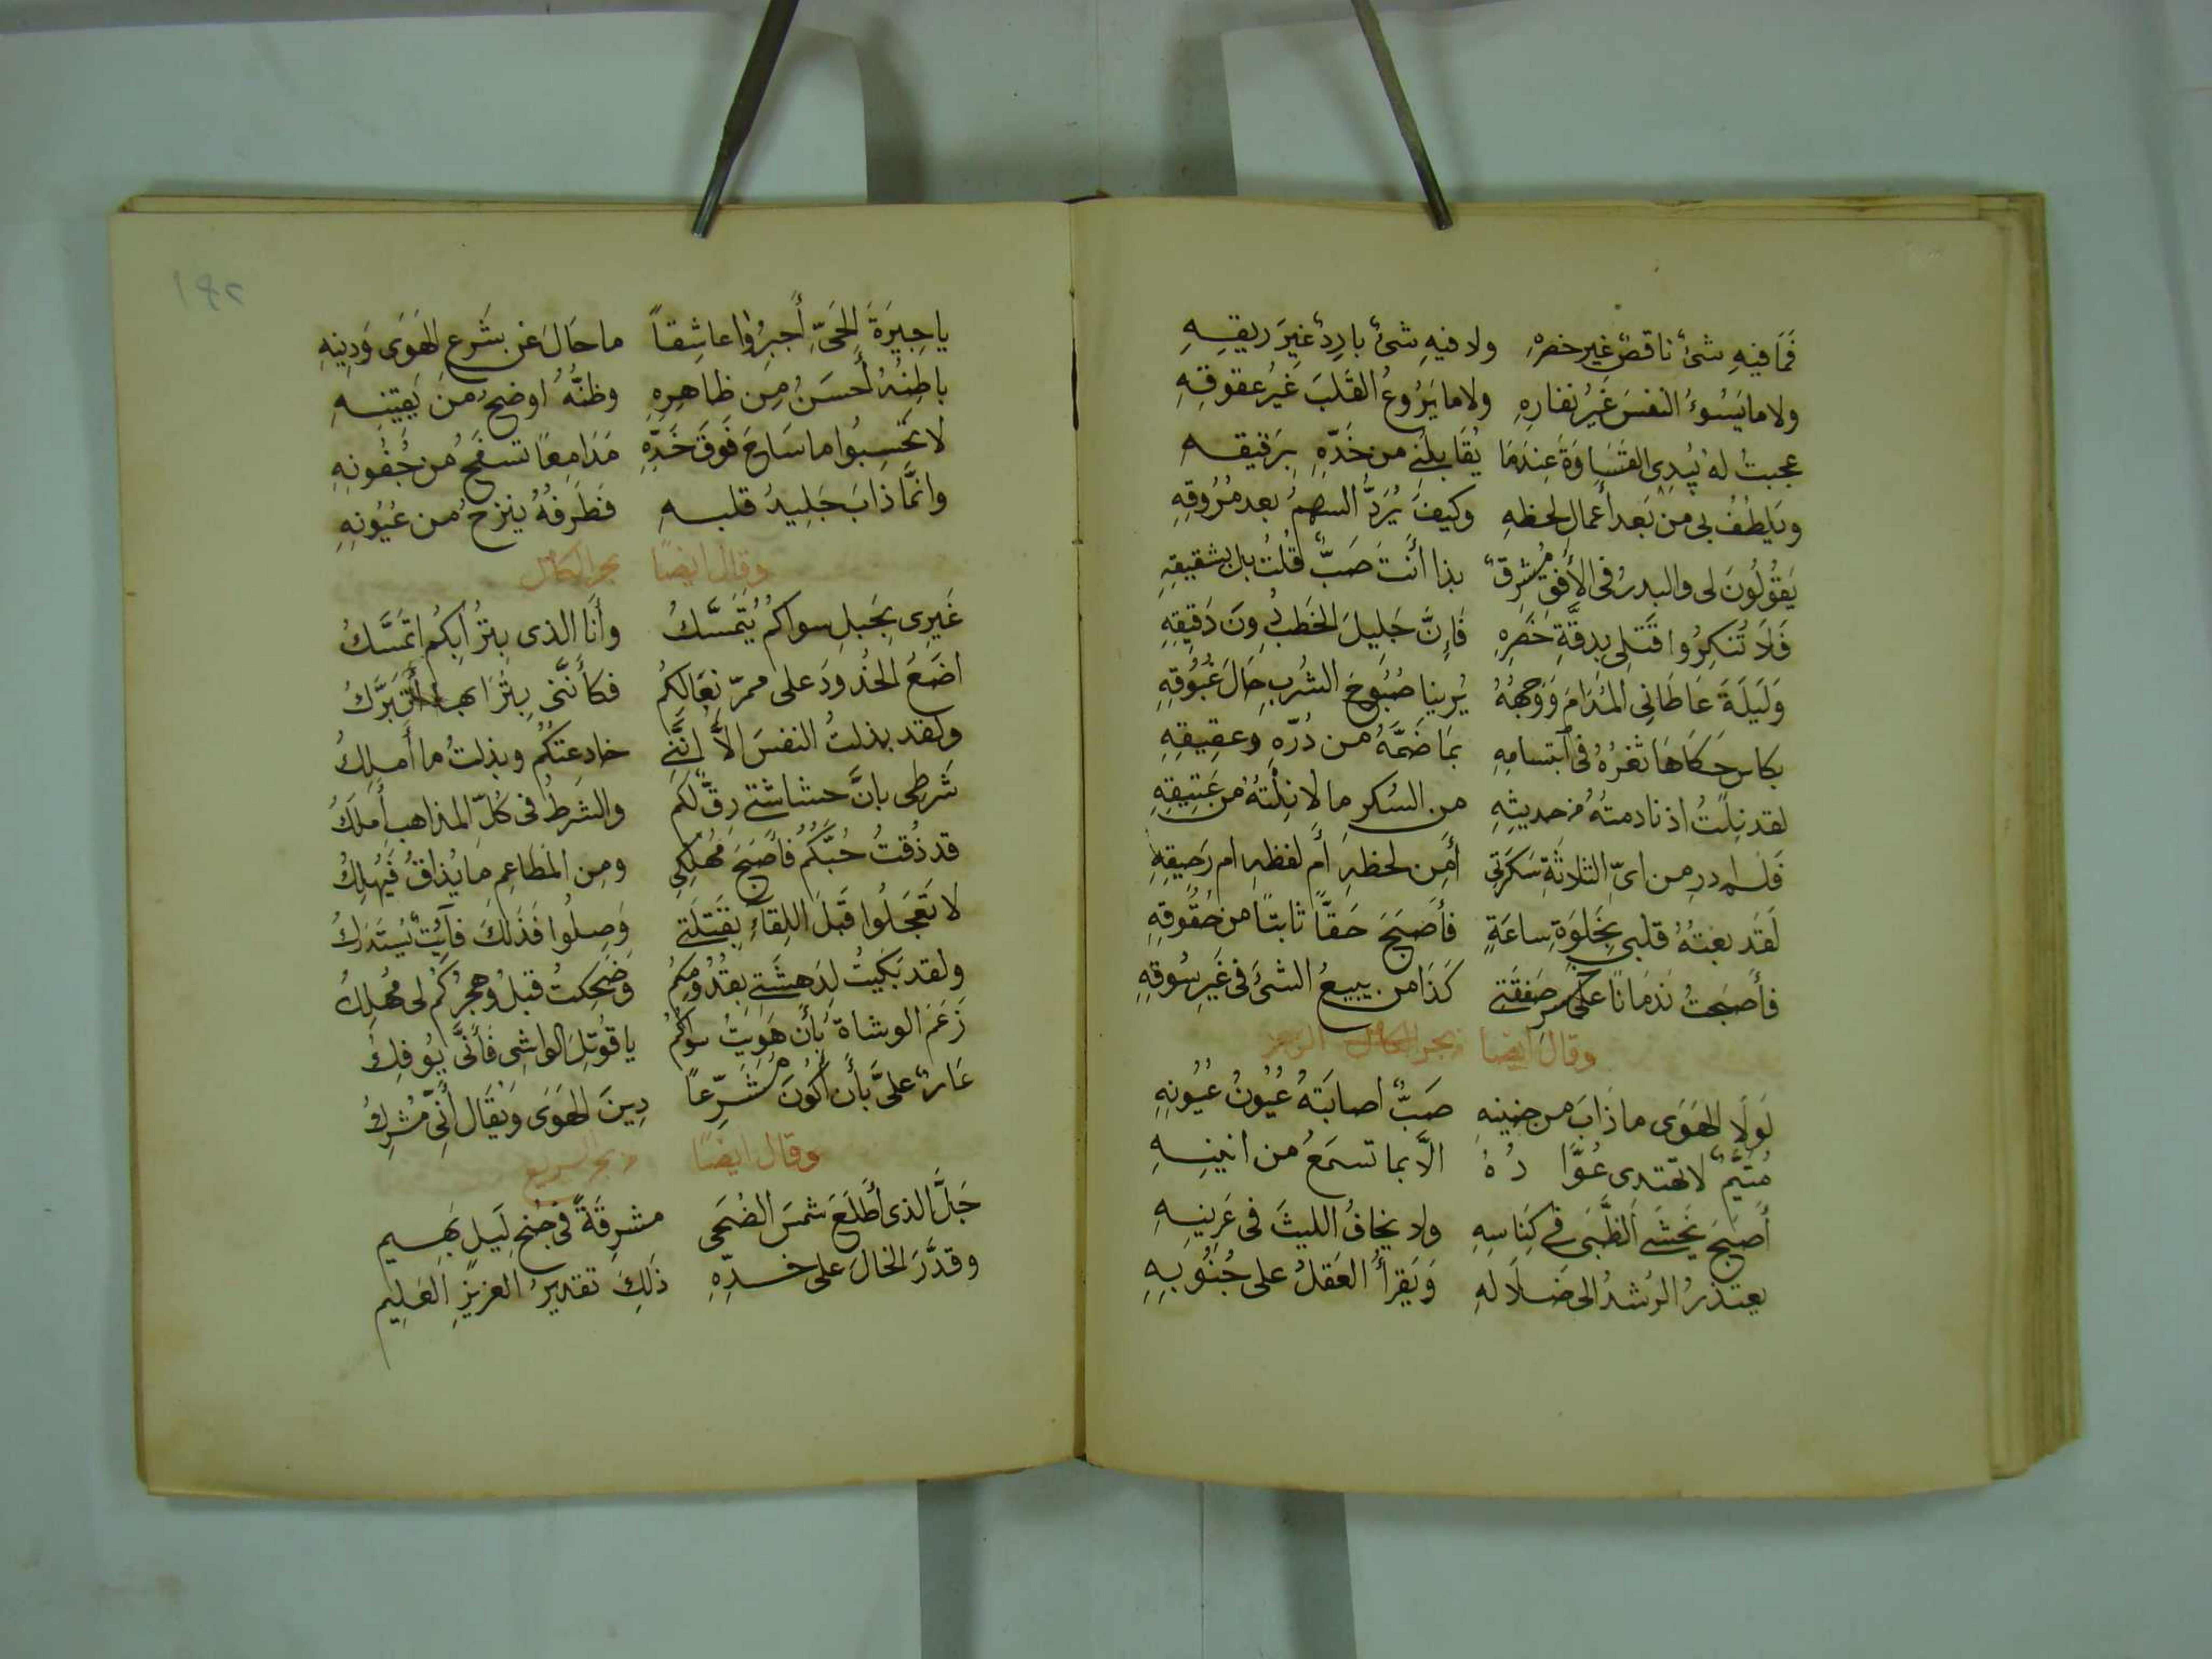 فَمَا فيهِ شئٌ ناقصٌ غير خصرهِ ولا فيهِ شئٌ باردٌ غيرَ ريقِهِ
ولا ما يَسُوءُ النفسَ غَيرُ نفارِهِ ولا ما يَرُوعُ القَلبَ غيرُ عقوقِهِ
عجبتُ لهُ يُبدِى القَسَاوَةَ عِندَمَا يُقَابِلُنِى من خَدّهِ بِرَقيقهِ
ويَلطفُ بى من بَعد أعمالِ لحظهِ وكيفَ يُرَدُّ السهمُ بعد مُرُوقِهِ
يَقُولُونَ لى والبدرُ فى الأفقِ مُشرِقٌ بذا أَنتَ صَبٌّ قُلتُ بل بشقيقِهِ
فَلَا تُنكِرُوا قَتلِى بِدقَّةِ خَصرِهِ فَإِنَّ جَلِيلَ الخَطبِ دُونَ دَقِيقِهِ
وَلَيلَةَ عَاطَانِى المُدَامَ وَوَجهُهُ يُرينا صَبُوحَ الشُربِ حَالَ غَبُوقِهِ
بكاس حَكَاهَا ثغرُهُ فى ابتسامِهِ بمَا ضَمَّهُ من دُرّهِ وعقِيقِهِ
لقد نِلتُ اذ نادمتُهُ من حديثِهِ من السُكرِ ما لا نِلتُهُ من عَتِيقِهِ
فَلم ادرِ من اىّ الثلاثَةِ سَكرَتِى أَمِن لحظهِ أم لفظهِ ام رَحِيقِهِ
لَقَد بعتُهُ قلبى بِخَلوَةِ ساعَةٍ فأَصبَحَ حَقًّا ثابتًا من حقُوقِهِ
فأَصبَحتُ نَدمَانًا على خسرِ صَفقَتِى كَذَا من يبيعُ الشئَ فى غَيرِ سُوقِهِ
وقال ايضا من بحر الكامل الرجز
لَولَا الهَوَى ما ذَابَ من حنينهِ صَبٌّ اصابَتهُ عُيُونُ عُيُونِهِ
مُتَيَّمٌ لا تهتدى عُوَّا دُهُ الَّا بما تسمَعُ من انينِهِ
أَصبَحَ يَخشَى الظَّبىَ فى كِنَاسِهِ ولا يخافُ الليثَ فى عَرِينِهِ
يعتذرُ الرُشدُ الى ضَلَالهِ وَيَقرأُ العَقلُ على جُنُونِهِ
١٤٢
يا جِيرَةَ الحَىِّ أَجِيرُوا عاشِقاً ما حَالَ عن شَرعِ الهَوَى وَدِينِهِ
باطِنُهُ أَحسَنُ مِن ظاهِرِهِ وظنُّهُ اوضحُ من يَقِينِهِ
لا تَحَسِبُوا ما سَاحَ فَوقَ خَدِّهِ مَدَامِعًا تسفَحُ من جُفُونِهِ
وانمَّا ذابَ جَلِيدُ قلبهِ فَطَرفُهُ ينزحُ من عُيُونِهِ
وقال ايضًا بحر الكامل
غَيرِى بِحَبلِ سواكُم يُتَمَسَّكُ وأَنَا الذى بِتُرَابِكُم اتمَسَّكُ
اضَعُ الخُدُودَ على ممرّ نِعَالكم فكأَنَّنى بِتُرَابها أَتبَرَّكُ
ولقد بذلتُ النفسَ الاَّ انَّنِى خادعتكُم وبذلتُ ما أَملِكُ
شَرطِى بانَّ حشاشتى رِقٌّ لكم والشَرطُ فى كُلِّ المذاهبِ أَملَكُ
قد ذُقتُ حُبَّكُم فأَصبَحَ مُهلِكِى ومِن المَطَاعِمِ ما يُذاقُ فَيُهلِكُ
لا تَعجَلُوا قَبلَ اللِقَاءِ بِقَتلَتِى وَصِلُوا فَذَلكَ فآئِتٌ يُستَدرَكُ
ولقد بَكَيتُ لِدَهشَتِى بقُدُومِكُم وضَحِكتُ قبلُ وهجرُكُم لى مُهلِكُ
زَعَمَ الوشاةُ بأَن هَوِيتُ سواكُم يا قُوتِلَ الواشِى فَأَنَّى يُوفِكُ
عَارٌ علىَّ بأَن أَكُونَ مُشَرِّعًا دِينَ الهَوَى وَيُقَال أَنِّى مُشرِكُ
وقال ايضًا من بحر السريع
جَلَّ الذى أَطلَعَ شمسَ الضُحَى مشرِقَةً فى جُنحِ لَيلٍ بَهِيم
وقدَّرَ الخالَ على خدِّهِ ذَلِكَ تقديرُ العزيزِ العَلِيم